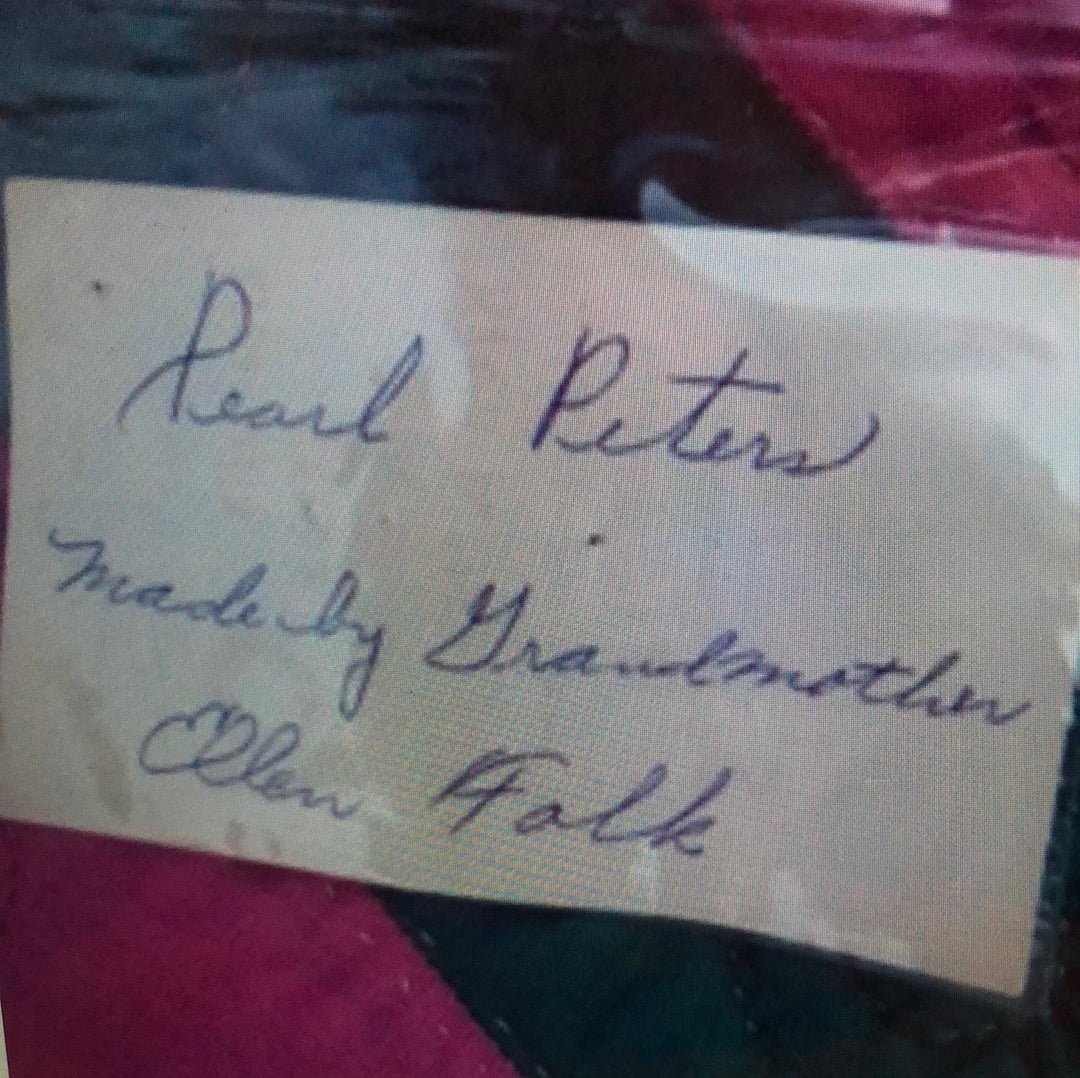 Pearl Peters
Made by Grandmother
Ellen Folk